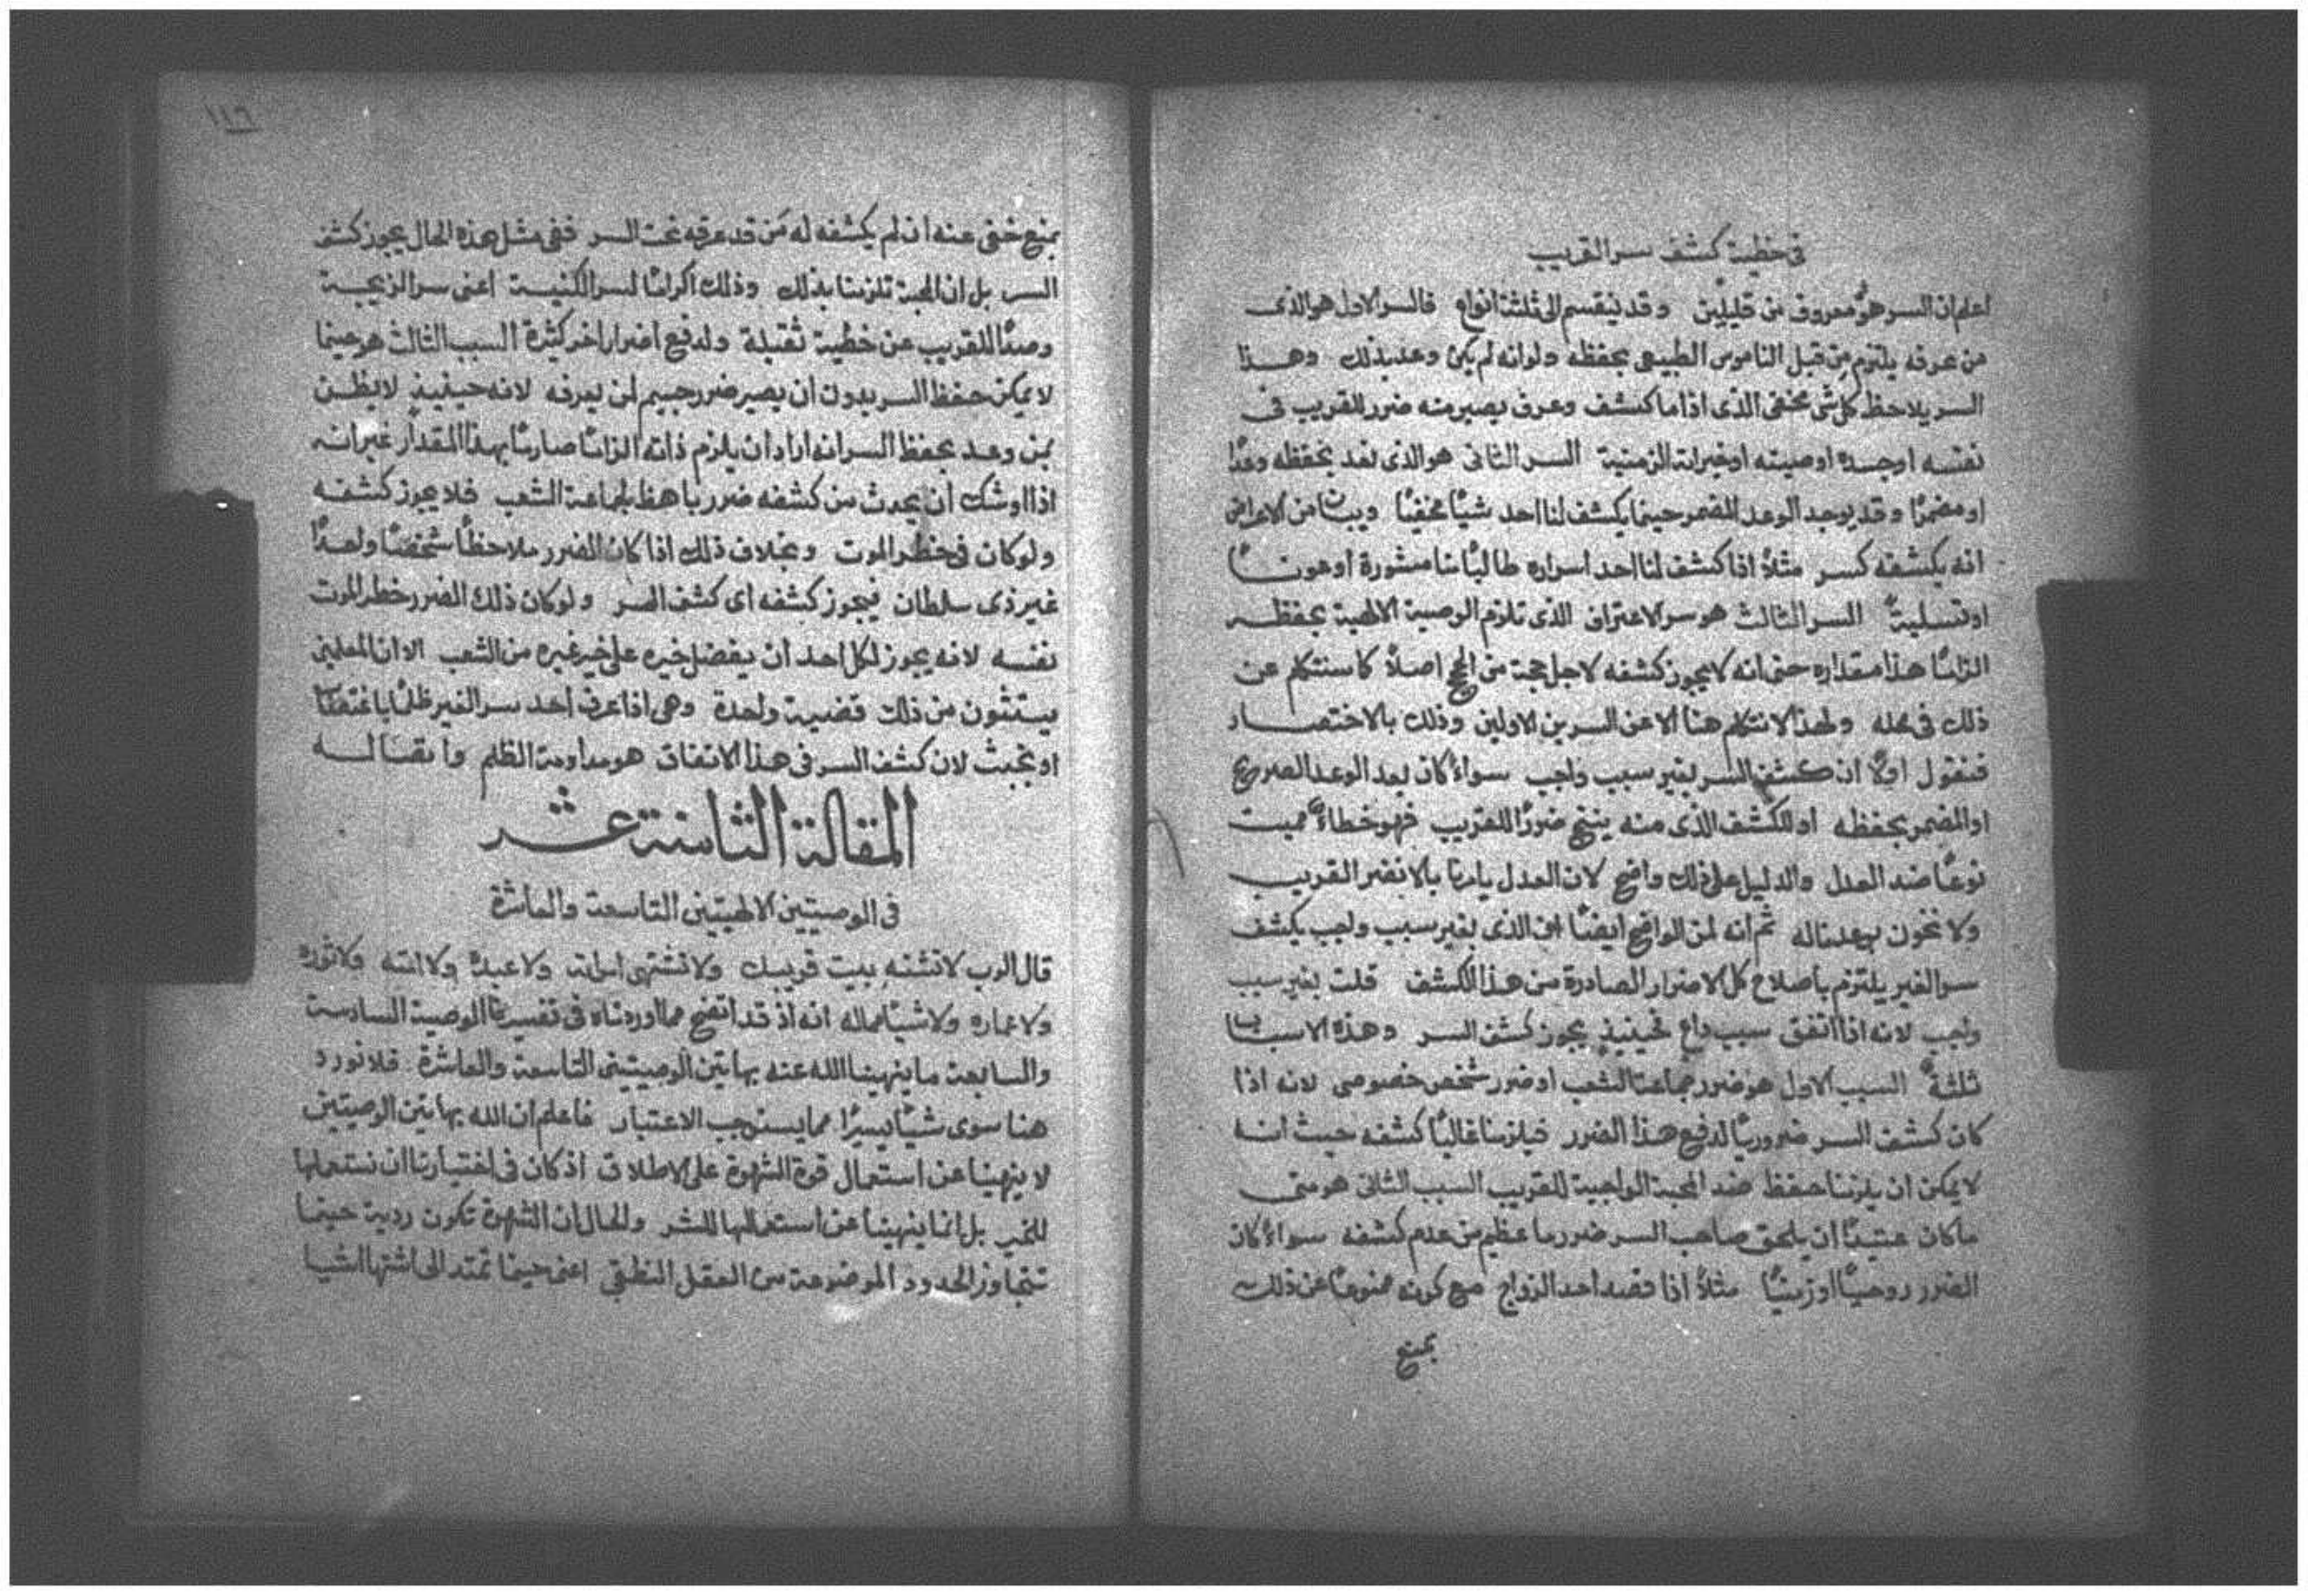 في خطية كشف سر القريب
اعلم ان السر هو معروف من قليلين وقد ينقسم الى ثلثة انواع فالسر الاول هو الذى
من عرفه يلتزم من قبل الناموس الطبيعي بحفظه ولو انه لم يكن وعد بذلك وهذا
السر يلاحظ كل شى مخفى الذى اذا ما كشف وعرف يصير منه ضرر للقريب فى
نفسه او جسده او صيته او خيراته الزمنية السر الثانى هو الذى نعد بحفظه وعدًا
او مضمرًا وقد يوجد الوعد المضمر حينما يكشف لنا احد شيًا مخفيًا ويبان من الاعراض
انه يكشفه كسر مثلاً اذا كشف لنا احد اسراره طالبًا منا مشورة او عونًا
او تسليةً السر الثالث هو سر الاعتراف الذى تلزم الوصية الالهية بحفظه
الزامًا هذا مقداره حتى انه لا يجوز كشفه لاجل حجة من الحجج اصلاً كما سنتكلم عن
ذلك فى محله ولهذا لا نتكلم هنا الا عن السرين الاولين وذلك بالاختصار
فنقول اولاً ان كشف السر بغير سبب واجب سواءً كان بعد الوعد الصريح
او المضمر بحفظه او الكشف الذى منه ينتج ضررًا للقريب فهو خطاءً مميت
نوعًا ضد العدل والدليل على ذلك واضح لان العدل يامرنا بالا نضر القريب
ولا نخون بوعدنا له ثم انه لمن الواضح ايضًا ان الذى بغير سبب واجب يكشف
سر الغير يلتزم باصلاح كل الاضرار الصادرة من هذا الكشف قلت بغير سبب
واجب لانه اذا اتفق سبب داعٍ فحينيذٍ يجوز كشف السر وهذه الاسباب
ثلثةٌ السبب الاول هو ضرر جماعة الشعب او ضرر شخص خصوصى لانه اذا
كان كشف السر ضروريًا لدفع هذا الضرر فيلزمنا غالبًا كشفه حيث انه
لا يمكن ان يلزمنا حفظ ضد المحبة الواجبة للقريب السبب الثانى هو متى
ما كان عتيدًا ان يلحق صاحب السر ضرر ما عظيم من عدم كشفه سواءً كان
الضرر روحيًا او زمنيًا مثلاً اذا قصد احد الزواج مع كونه ممنوعًا عن ذلك
بمنع
١١٦
بمنع خفى عنه ان لم يكشفه له من قد عرفه تحت السر ففى مثل هذه الحال يجوز كشف
السر بل ان المحبة تلزمنا بذلك وذلك اكرامًا لسر الكنيسة اعنى سر الزيجية
وصدًا للقريب عن خطية ثقيلة ولدفع اضرار اخر كثيرة السبب الثالث هو حينما
لا يمكن حفظ السر بدون ان يصير ضرر جسيم لمن يعرفه لانه حينيذٍ لا يظن
بمن وعد بحفظ السر انه اراد ان يلزم ذاته الزامًا صارمًا بهذا المقدار غير انه
اذا اوشك ان يحدث من كشفه ضرر باهظ لجماعة الشعب فلا يجوز كشفه
ولو كان فى خطر الموت وبخلاف ذلك اذا كان الضرر ملاحظًا شخصًا واحدًا
غير ذى سلطان فيجوز كشفه اى كشف السر ولو كان ذلك الضرر خطر الموت
نفسه لانه يجوز لكل احد ان يفضل خيره على خير غيره من الشعب الا ان المعلمين
يستثنون من ذلك قضية واحدة وهى اذا عرف احد سر الغير ظلمًا باغتصاب
او بخبث لان كشف السر فى هذا الاتفاق هو مداومة الظلم وابقا له
المقالة الثامنة عشر
فى الوصيتين الالهيتين التاسعة والعاشرة
قال الرب لا تشته بيت قريبك ولا تشتهى امراته ولا عبده ولا امته ولا ثوره
ولا حماره ولا شيًا مما له انه اذ قد اتضح مما اوردناه فى تفسيرنا الوصية السادسة
والسابعة ما ينهينا الله عنه بهاتين الوصيتين التاسعة والعاشرة فلا نورد
هنا سوى شيًا يسيرًا مما يستوجب الاعتبار فاعلم ان الله بهاتين الوصيتين
لا ينهينا عن استعمال قوة الشهوة على الاطلاق اذ كان فى اختيارنا ان نستعملها
للخير بل انما ينهينا عن استعمالها للشر والحال ان الشهوة تكون ردية حينما
تتجاوز الحدود الموضوعة من العقل النطقى اعنى حينما تمتد الى اشتها اشيا